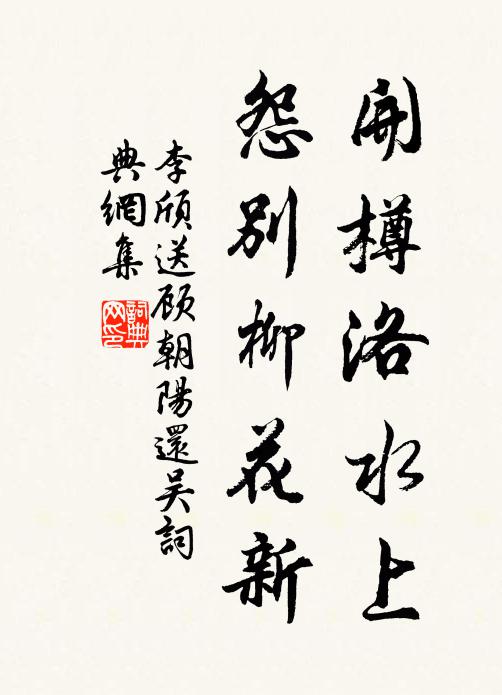 開樽洛水上
怨別柳花新
李頎送顧朝陽還吴詞
典網集
詞典
网印